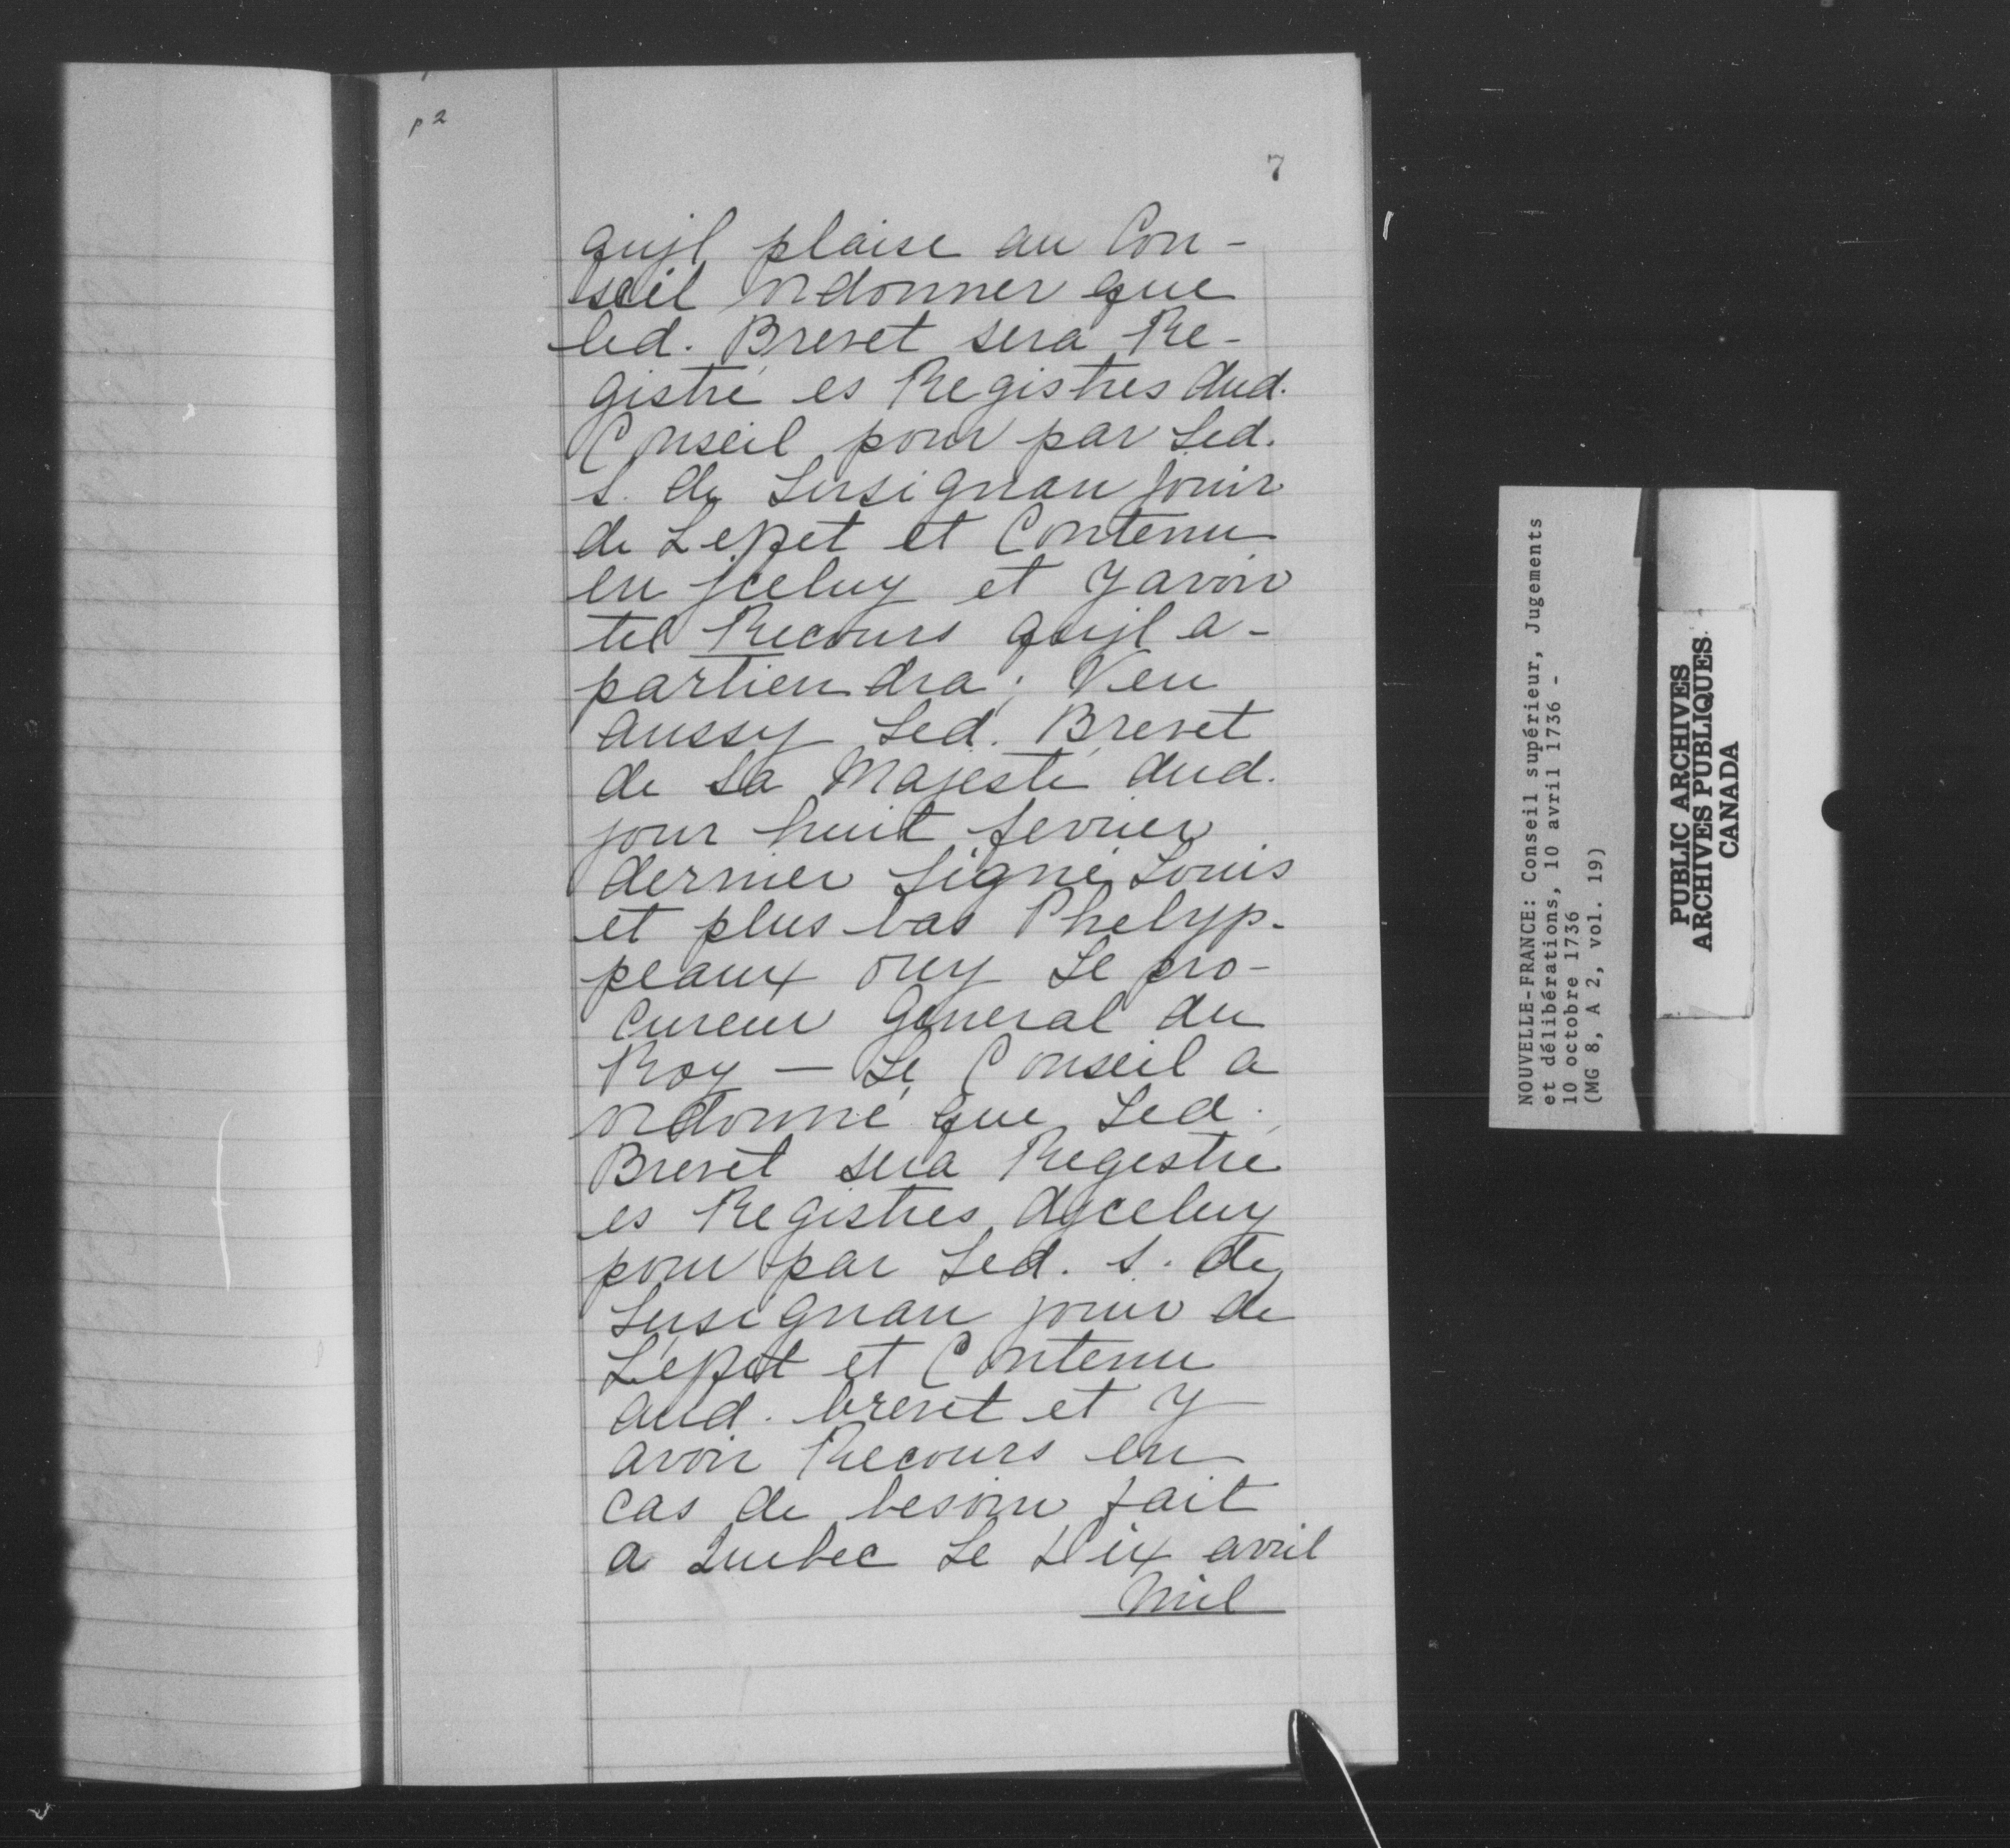 p 2
7
qujl plaise au Con-
seil ordonner que
led. Brevet sera Re-
gistré es Registres dud.
Conseil pour par Led.
s. de Lusignan jouir
de Leffet et Contenu
en jceluy et y avoir
tel Recours qujl a-
partiendra; Veu
aussy Led. Brevet
de sa Majesté dud.
jour huit fevrier
dernier signé Louis
et plus bas Phelyp-
peaux ouy Le pro-
cureur General du
Roy — Le Conseil a
ordonné que Led.
Brevet sera Registré
es Registres dyceluy
pour par Led. s. de
Lusignan jouir de
L'effet et Contenu
aud. brevet et y
avoir Recours en
cas de besoin fait
a Quebec Le Dix avril
Mil
NOUVELLE-FRANCE: Conseil supérieur, Jugements
et délibérations, 10 avril 1736 -
10 octobre 1736
(MG 8, A 2, vol. 19)
PUBLIC ARCHIVES
ARCHIVES PUBLIQUES
CANADA